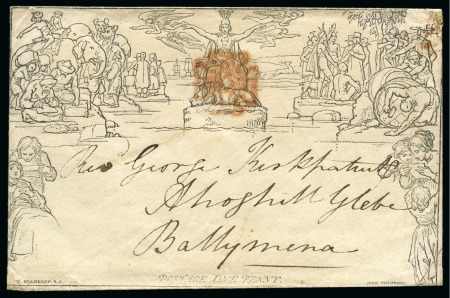 Rev^d George Kirkpatrick
Ahoghill Glebe
Ballymena
POSTAGE ONE PENNY.
W. MULREADY. R.A.
JOHN THOMPSON